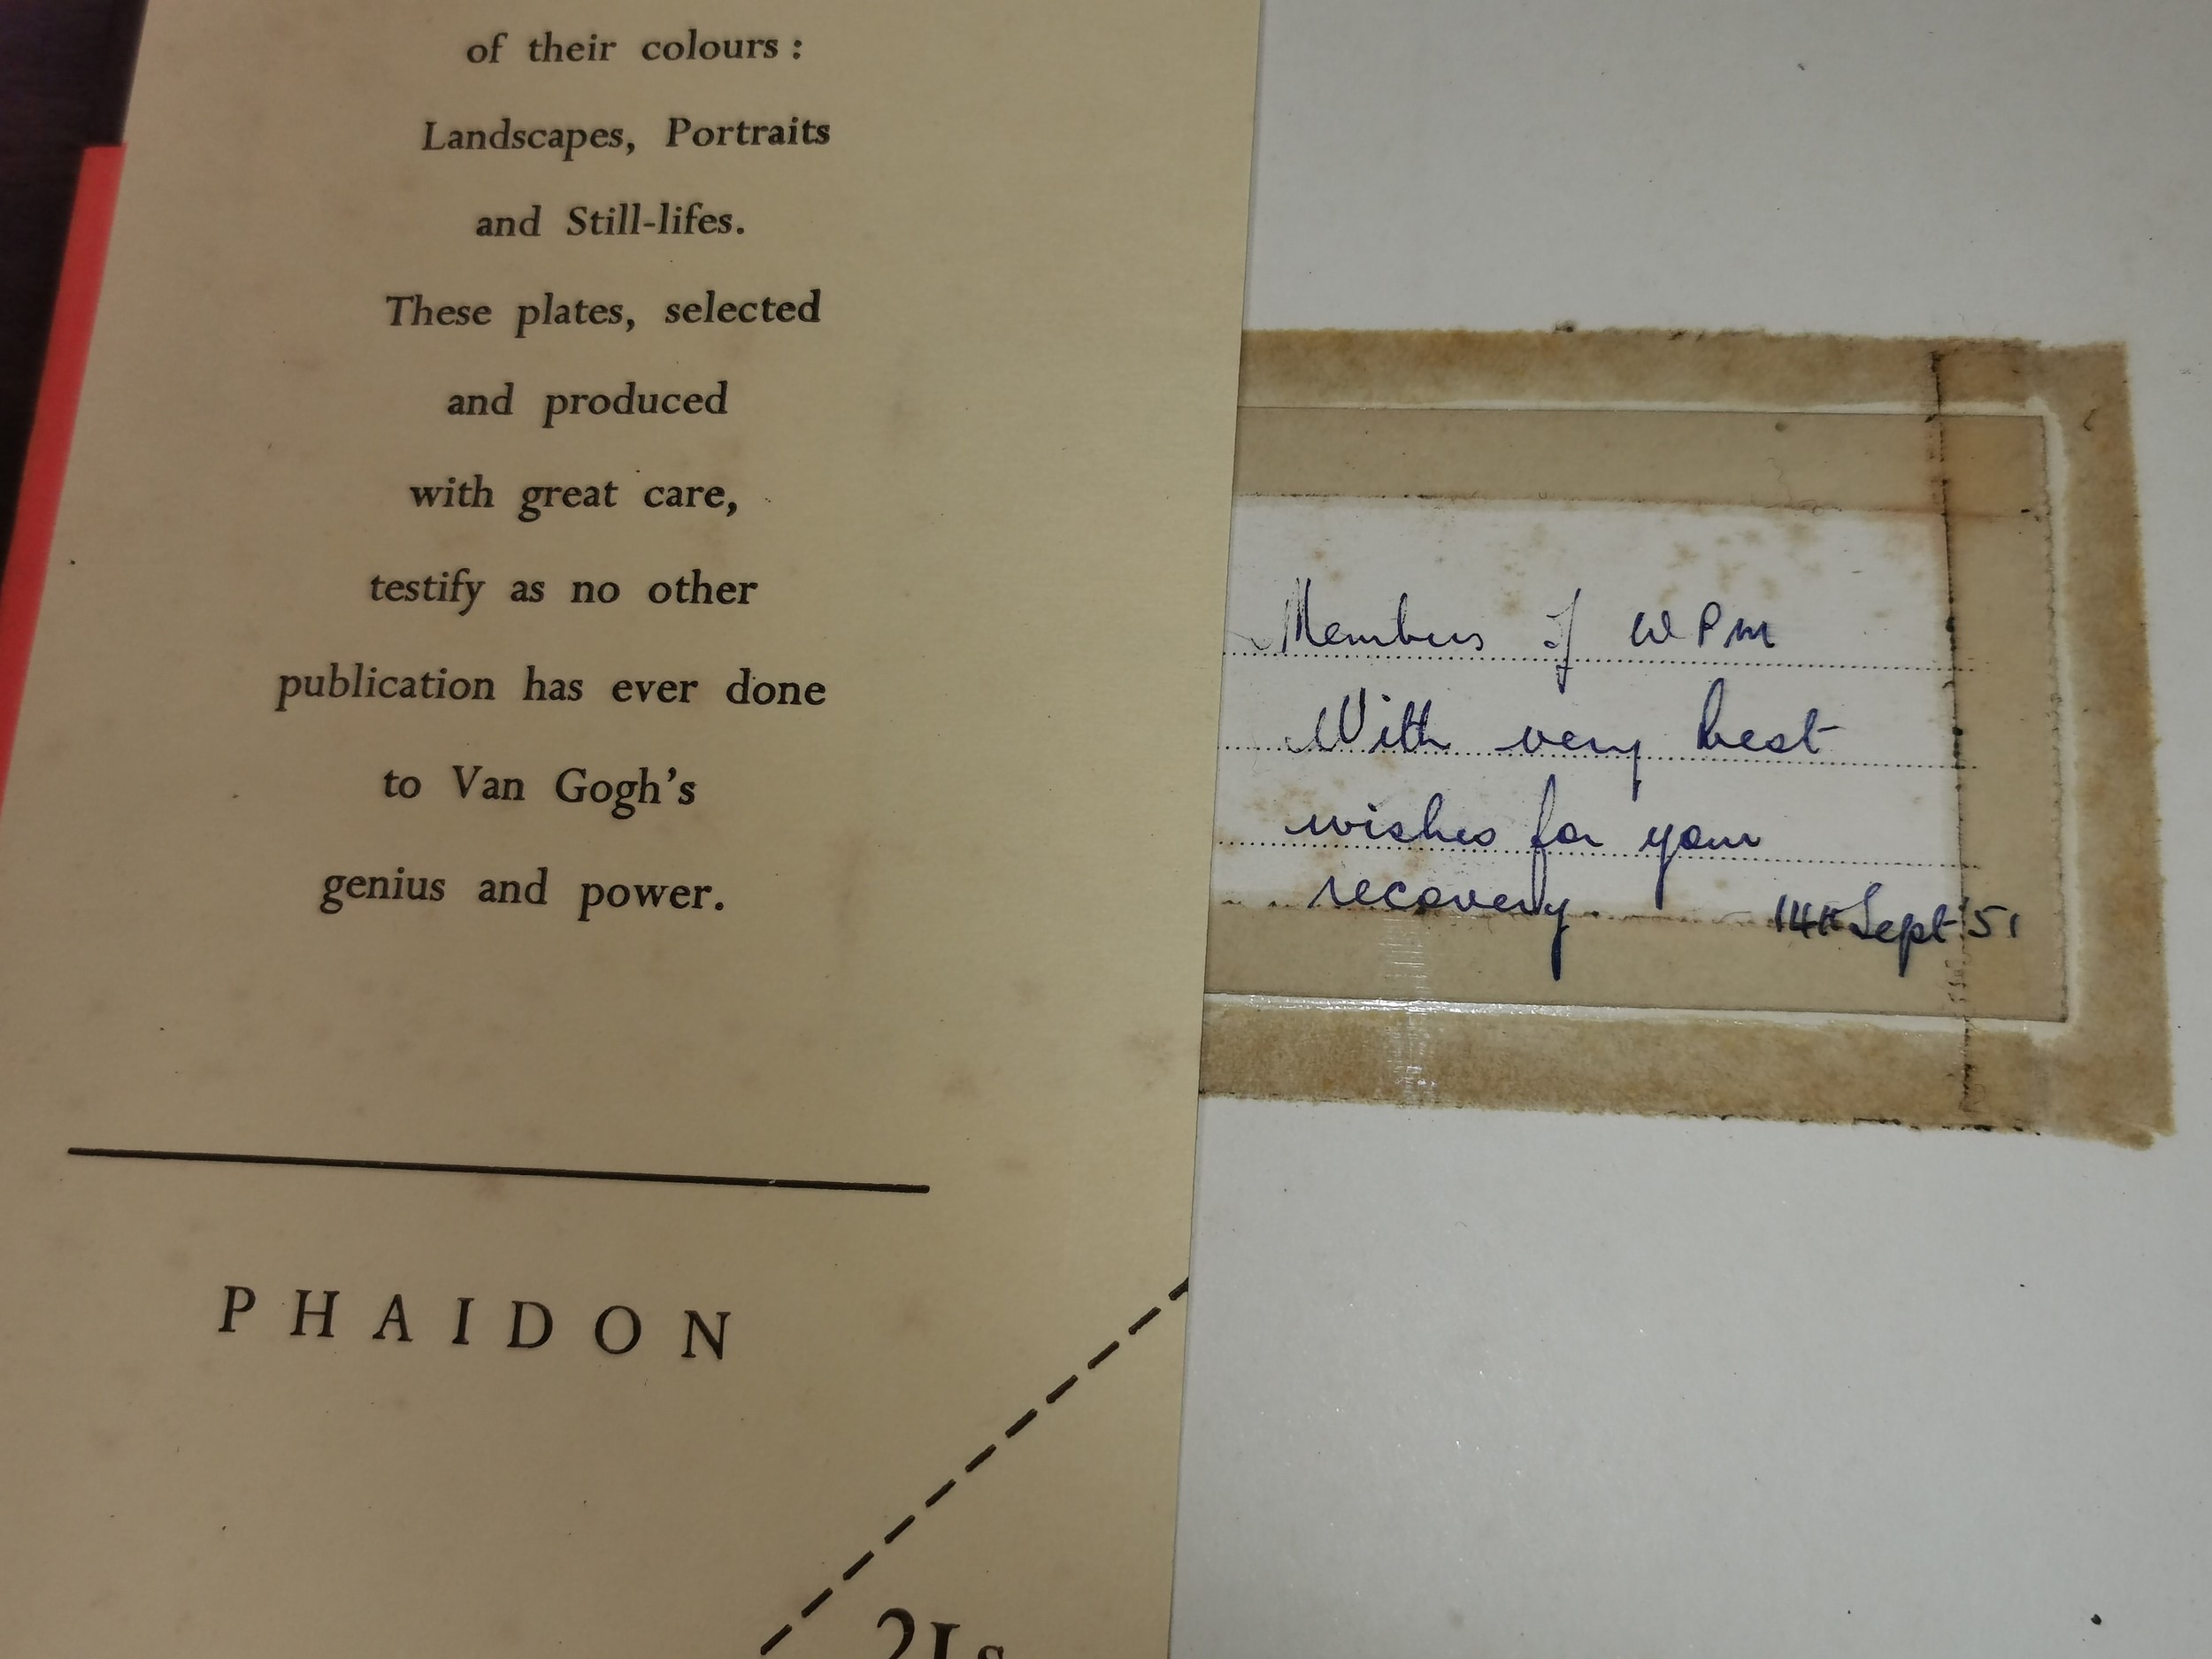 of their colours :
Landscapes, Portraits
and Still-lifes.
These plates, selected
and produced
with great care,
testify as no other
publication has ever done
to Van Gogh's
genius and power.
PHAIDON
21s
Members of WPM
With very best
wishes for your
recovery.
14th Sept '51